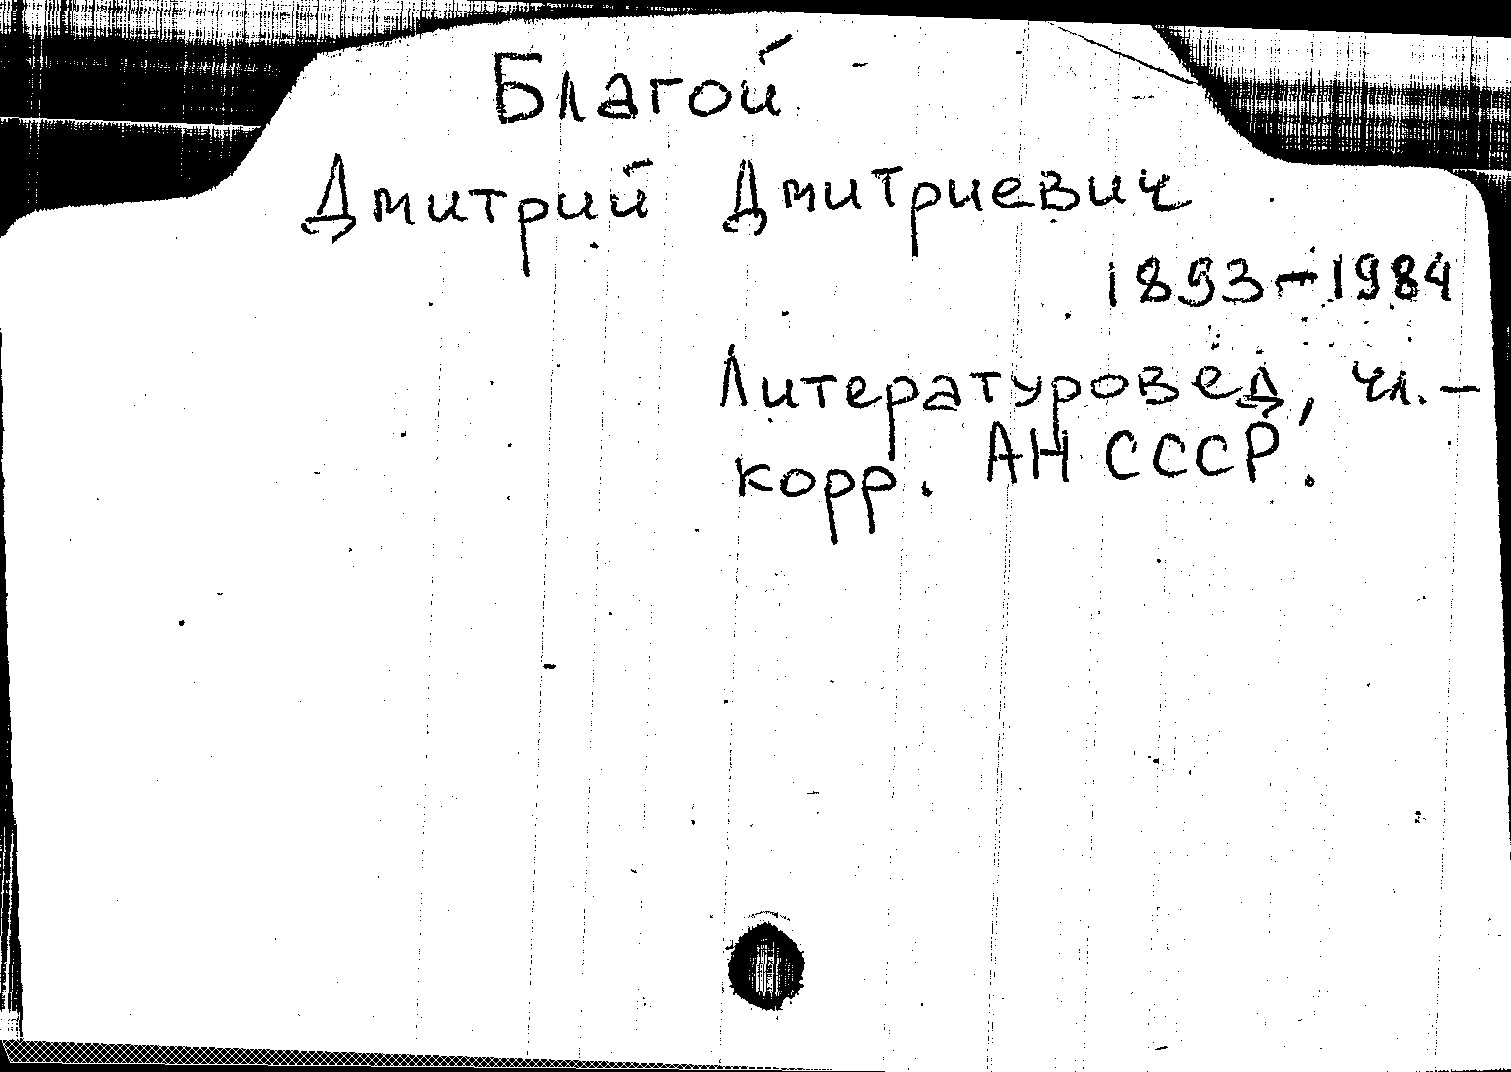 Благой
Дмитрий Дмитриевич
1893-1984
Литературовед, чл.-
корр. АН СССР.